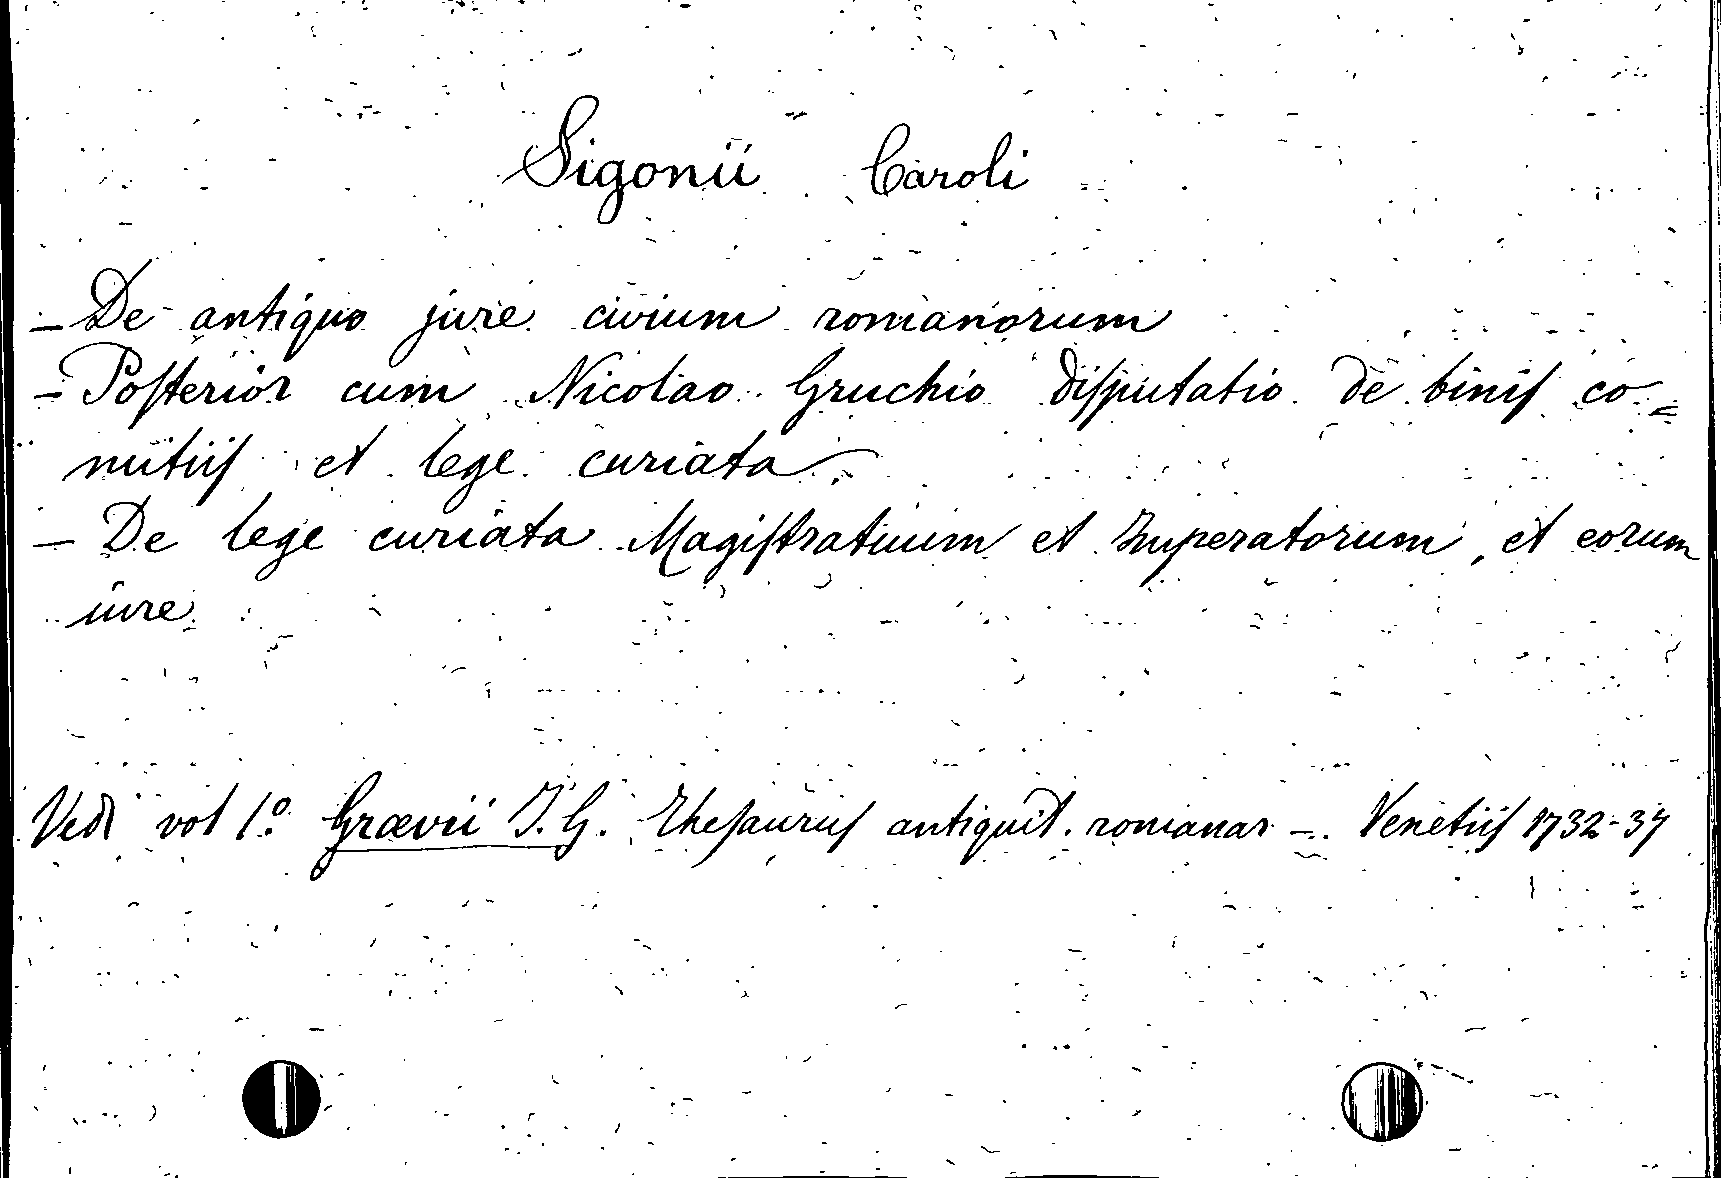 Sigonii Caroli
- De antiquo jure civium romanorum
- Posterior cum Nicolao Gruchio disputatio de binis co=
mitiis et lege curiata.
- De lege curiata Magistratuum et Imperatorum, et eorum
iure
Vedi vol 1.º Grævii J. G. Thesaurus antiquit. romanar -. Venetiis 1732-37